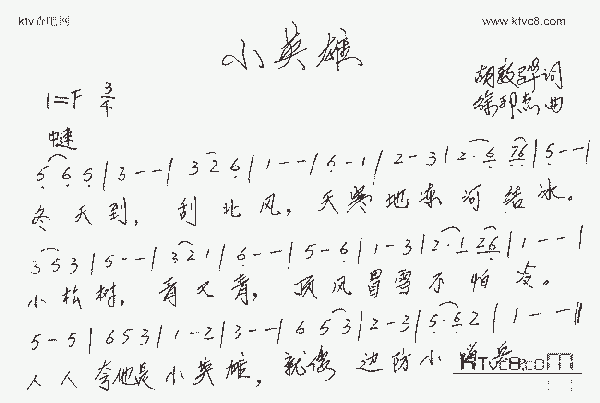 ktv吉吧网
www.ktvc8.com
小英雄
胡敦骅词
徐邦杰曲
1=F 3/4
5 6 5 | 3 - - | 3 2 6 | 1 - - | 6 - 1 | 2 - 3 | 2 · 6 76 | 5 - - |
冬天到，刮北风，天寒地冻河结冰。
3 5 3 | 5 - - | 3 2 1 | 6 - - | 5 - 6 | 1 - 3 | 2 · 1 26 | 1 - - |
小松树，青又青，顶风冒雪不怕冷。
5 - 5 | 6 5 3 | 1 - 2 | 3 - - | 6 5 3 | 2 - 3 | 5 · 6 2 | 1 - - ||
人人夸他是小英雄，就像边防小哨兵。
KTVC8.COM